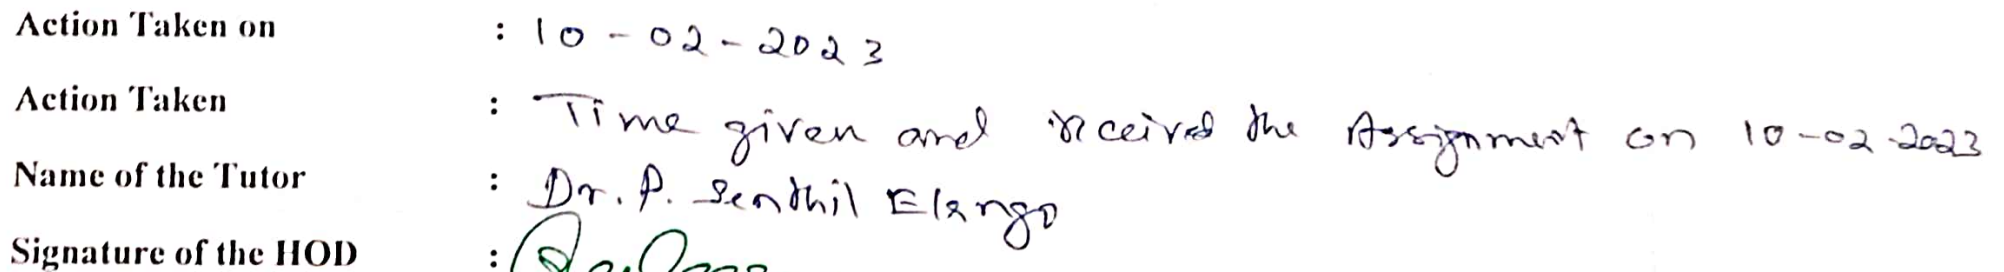 Action Taken on : 10-02-2023
Action Taken : Time given and received the Assignment on 10-02-2023
Name of the Tutor : Dr. P. Senthil Elango
Signature of the HOD :